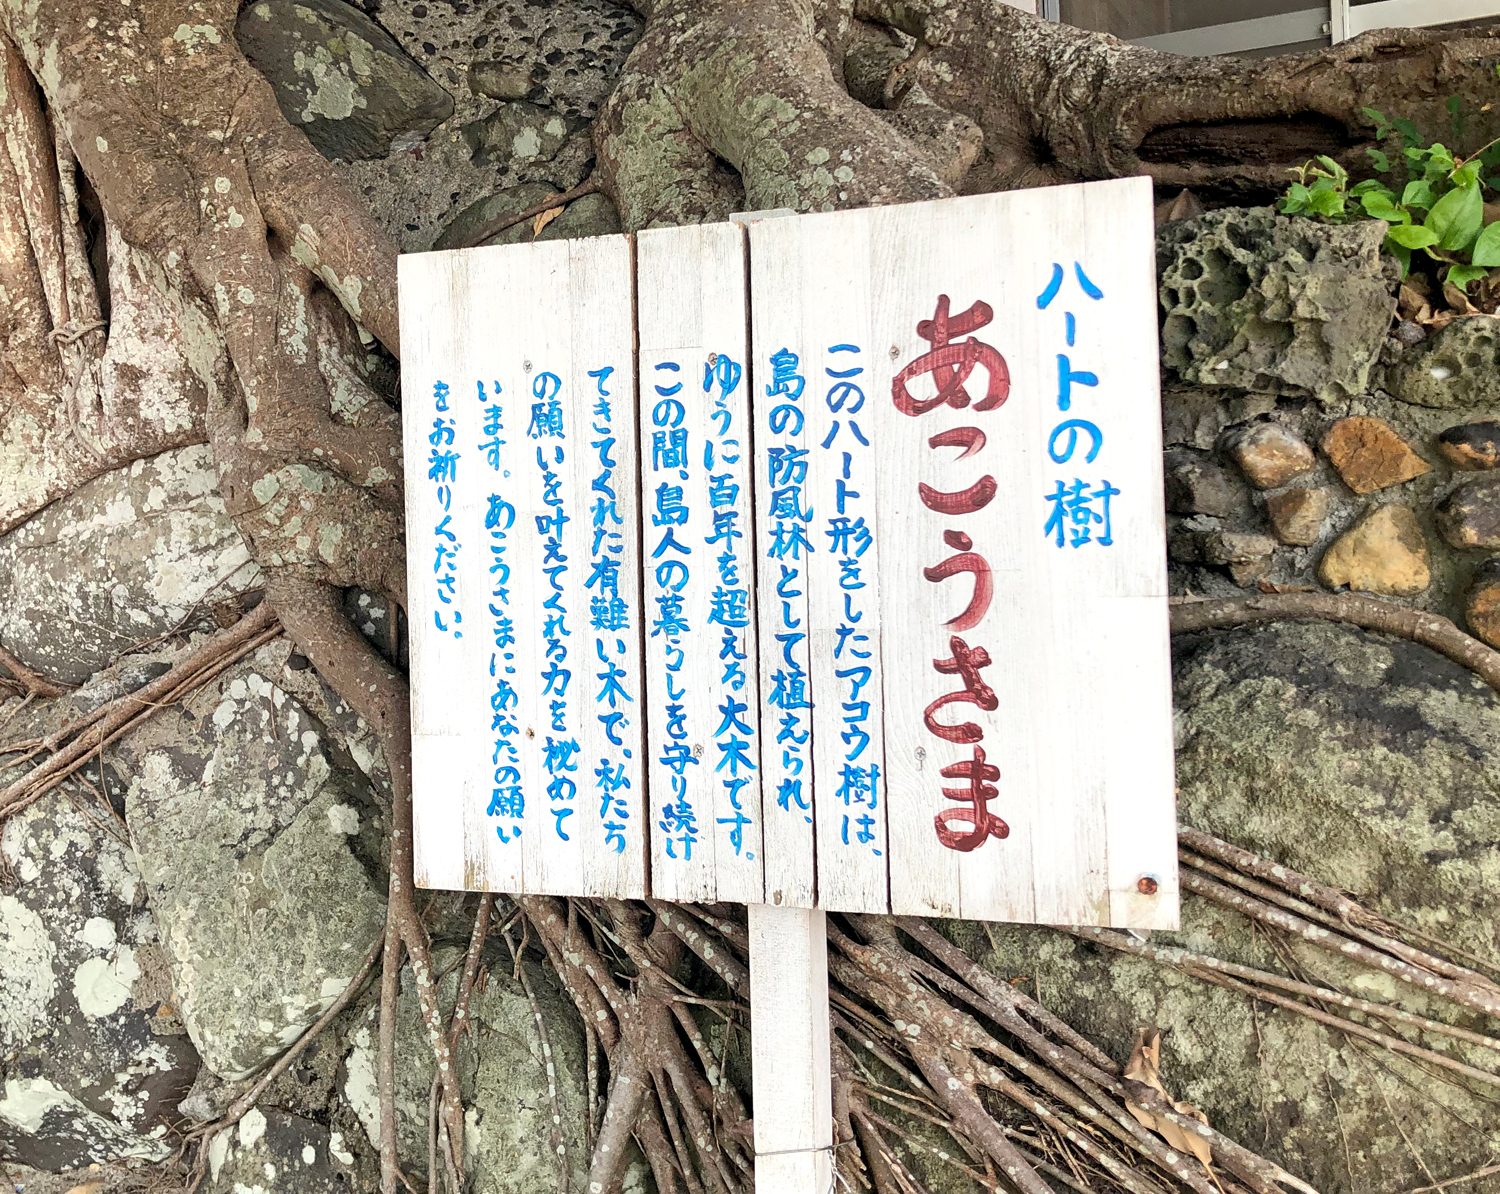 ハートの樹
あこうさま
このハート形をしたアコウ樹は、
島の防風林として植えられ、
ゆうに百年を超える大木です。
この間、島人の暮らしを守り続け
てきてくれた有難い木で、私たち
の願いを叶えてくれる力を秘めて
います。あこうさまにあなたの願い
をお祈りください。